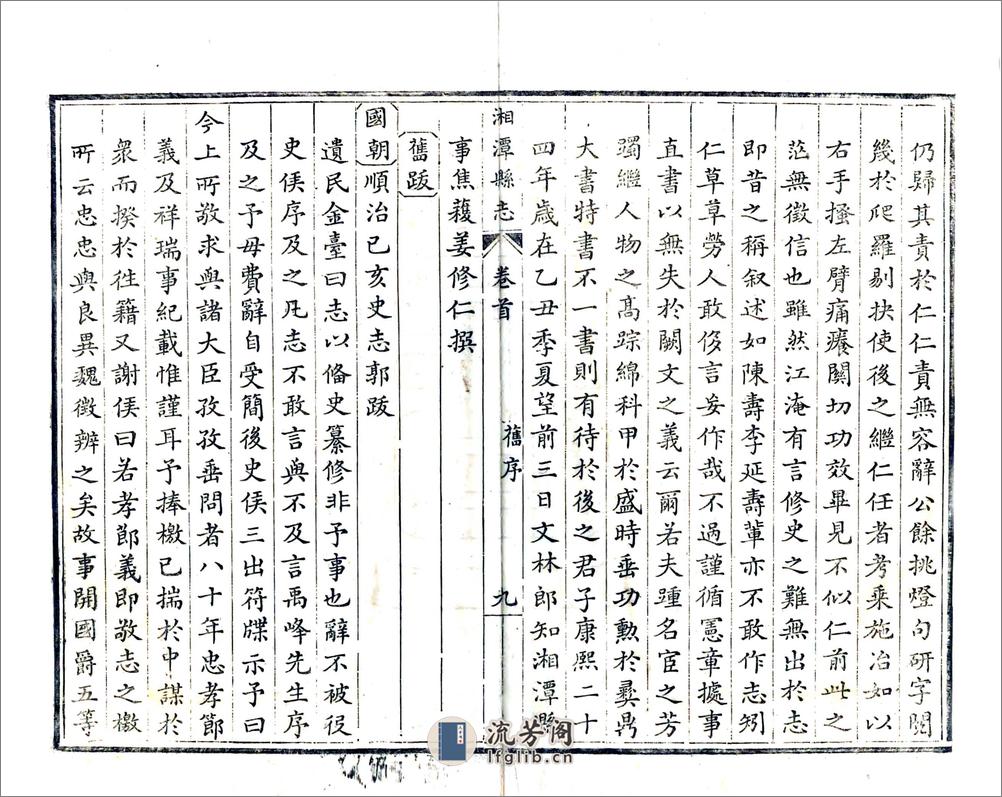 仍歸其責於仁仁責無容辭公餘挑燈句研字閱
幾於爬羅剔抉使後之繼仁任者考乘施治如以
右手搔左臂痛癢關切功效畢見不似仁前此之
茫無徵信也雖然江淹有言修史之難無出於志
即昔之稱叙述如陳壽李延壽輩亦不敢作志矧
仁草草勞人敢侈言妄作哉不過謹循憲章摭事
直書以無失於闕文之義云爾若夫踵名宦之芳
躅繼人物之髙踪綿科甲於盛時垂功勲於彝鼎
大書特書不一書則有待於後之君子康熙二十
四年歲在乙丑季夏望前三日文林郎知湘潭縣
事焦䕶姜修仁撰
湘潭縣志 卷首 舊序 九
舊跋
國朝順治己亥史志郭跋
遺民金臺曰志以俻史纂修非予事也辭不被役
史侯序及之凡志不敢言與不及言禹峰先生序
及之予毋費辭自受簡後史侯三出符牒示予曰
今上所敬求與諸大臣孜孜垂問者八十年忠孝節
義及祥瑞事紀載惟謹耳予捧檄已揣於中謀於
衆而揆於徃籍又謝侯曰若孝節義即敬志之檄
所云忠忠與良異魏徵辨之矣故事開國爵五等
流芳阁
lfglib.cn